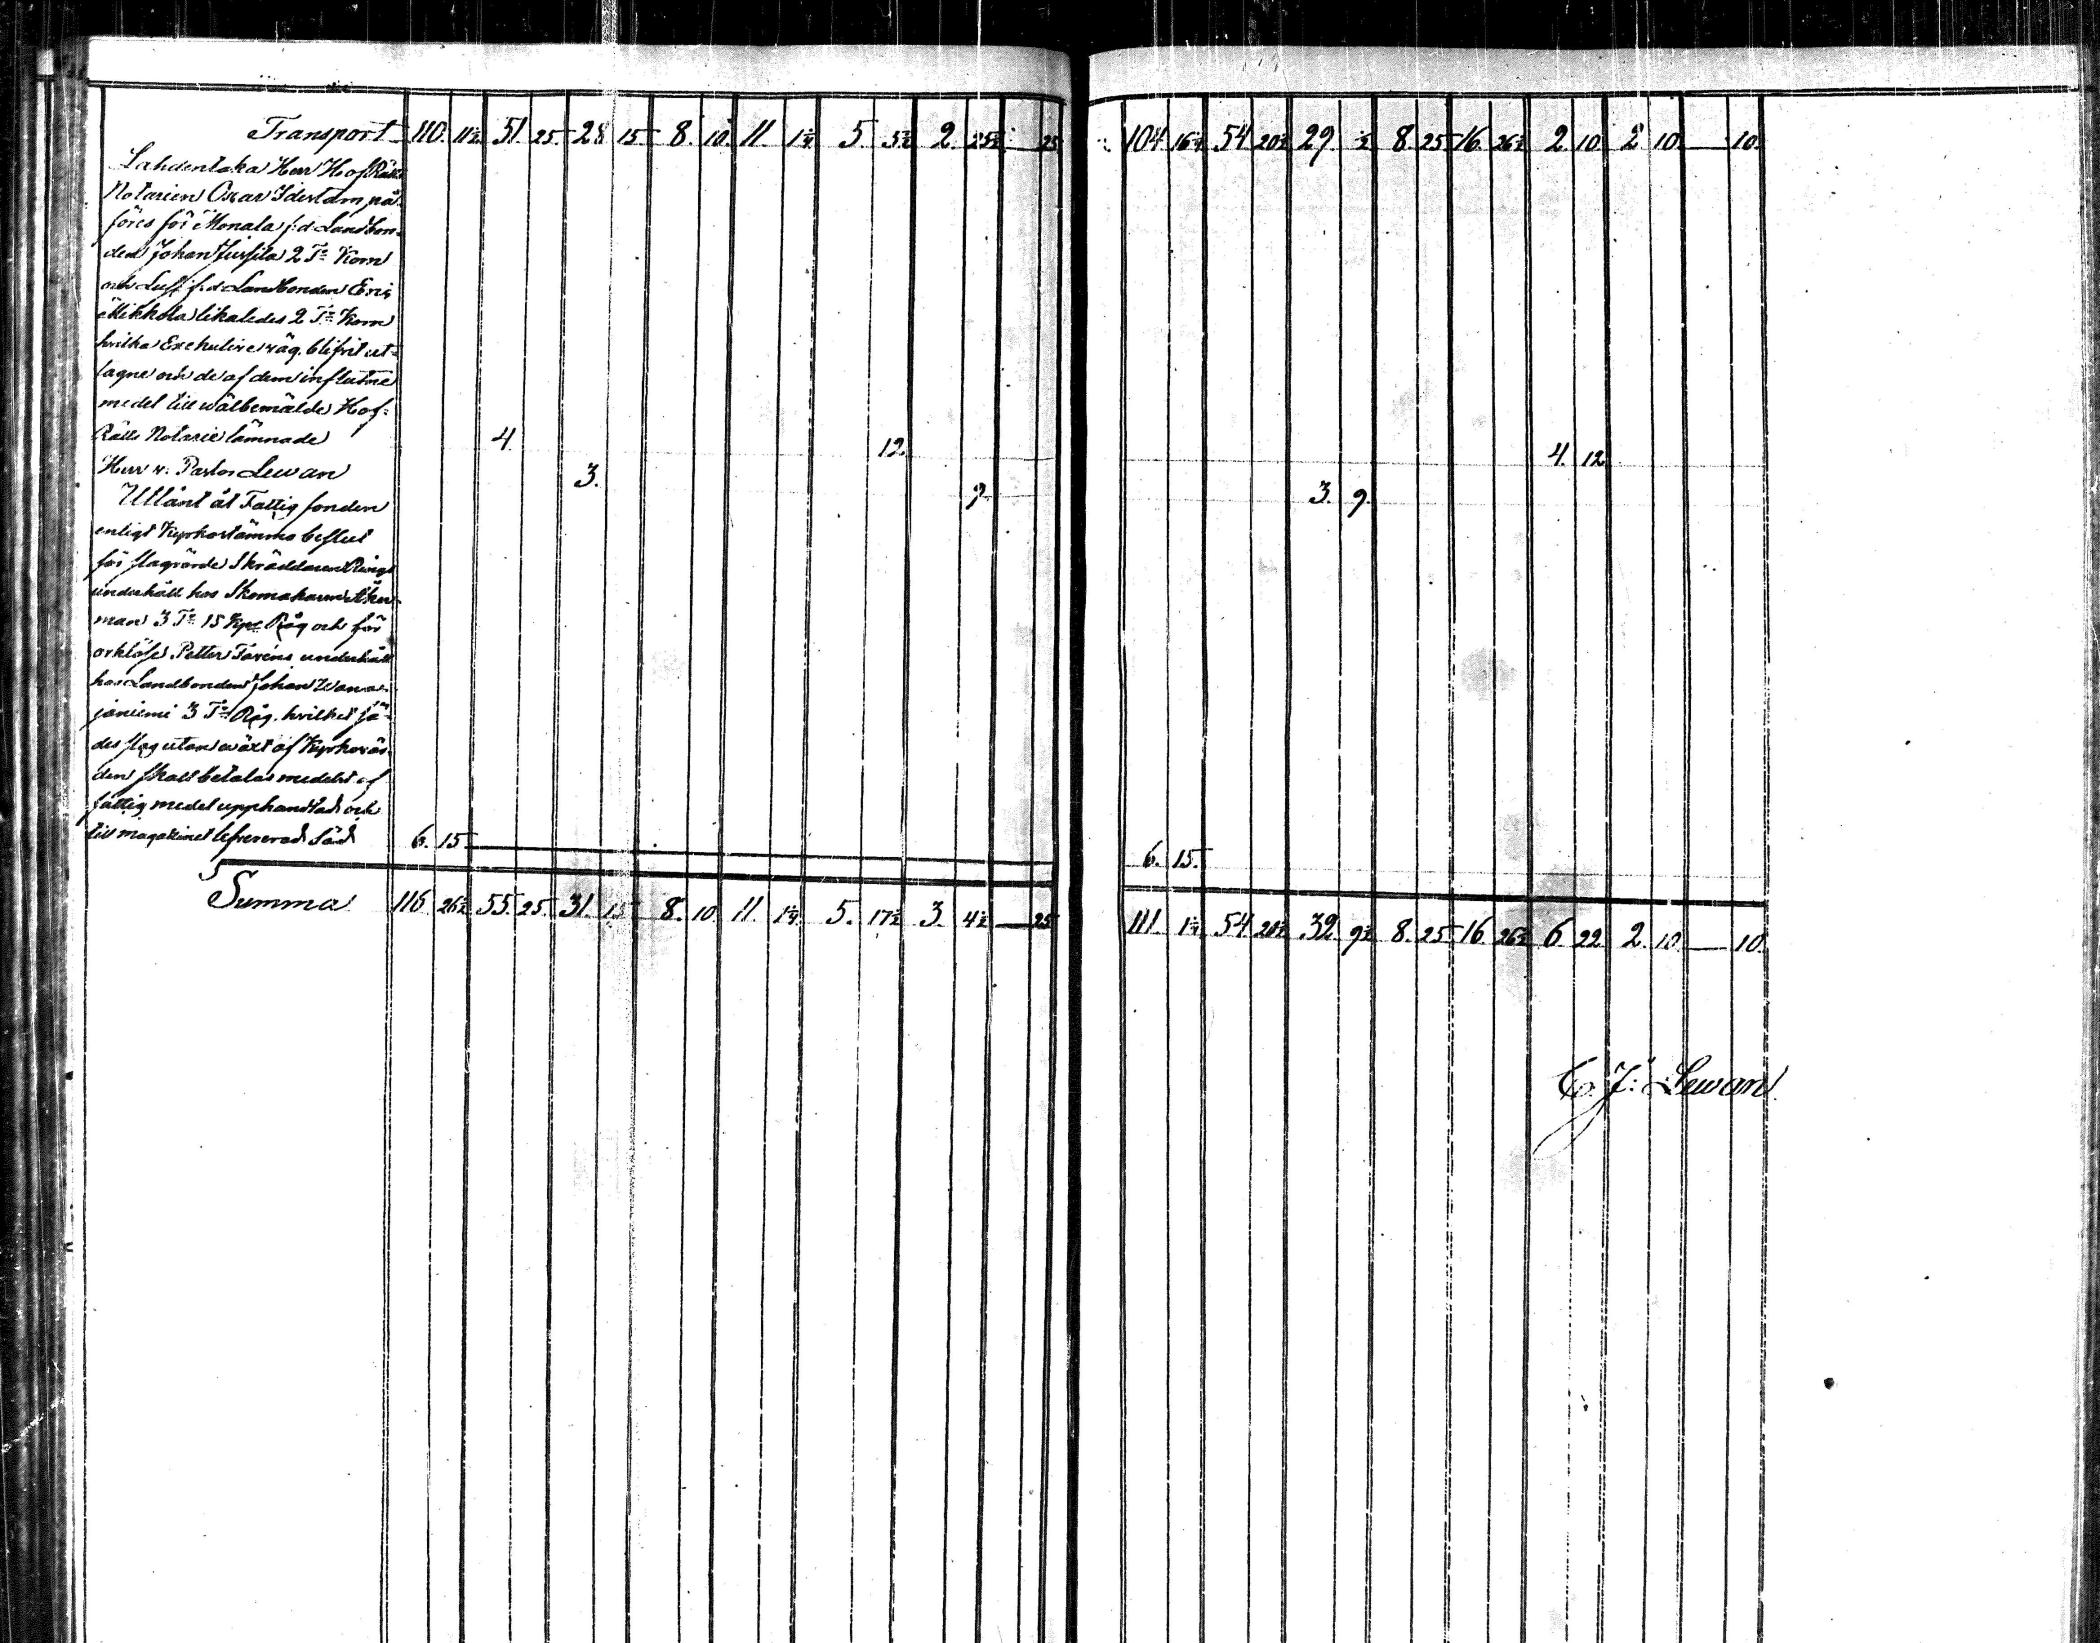 Transport 110. 11½ 51 25. 28 15 8. 10. 11. 1¼ 5. 5½ 2. 25½ — 25 104 16¼ 54 20½ 29. ½ 8 25 16. 26½ 2. 10. 2 10. — 10.
Lahdentaka Herr HofRätts
Notarien Oscar Idestam på-
föres för Monala f:d. Landbon-
den Johan Jussila 2 Tr Korn
och Lust f.d Landbonden Eric
Mikkola likaledes 2 Tr Korn
hvilka Exekutive väg. blifvit ut-
tagne och de af dem influtne
medel till wälbemälde Hof-
Rätts Notarie lämnade 4. 12. 4. 12
Herr v. Pastor Lewan 3. 9 3. 9.
Utlånt åt Fattig fonden
enligt Kyrkostämmo beslut
för slagrörde Skräddaren
underhåll hos Skomakaren Åker-
man 3 Tr 15 Kpr Råg och för
orklöse Petter Tavéns underhåll
hos Landbonden Johan
joniemi 3 Tr Råg. hvilket sä-
des slag utan wäxt af Kyrkovär-
den skall betalas medelst af
fattig medel upphandlad och
till magazinet lefvererad Säd 6. 15. 6. 15.
Summa 116 26½ 55. 25. 31. 15 8. 10 11. 1¼ 5. 17½ 3. 4½ — 25 111. 1¼ 54 20½ 32. 9½ 8. 25 16 26½ 6 22 2. 10. — 10.
C. J. Lewan